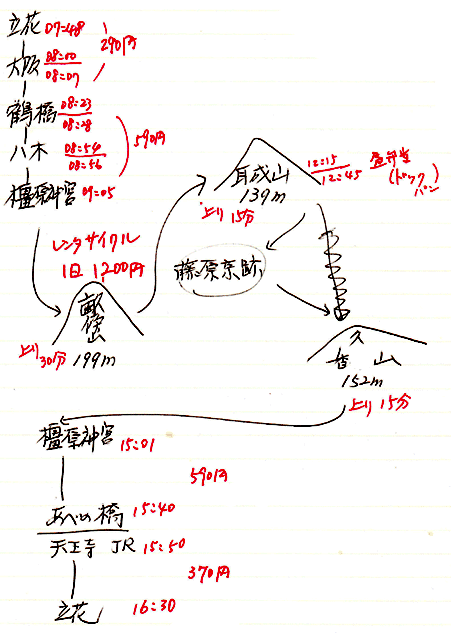 立花 07:48
290円
大阪 08:00
08:07
鶴橋 08:23
08:28
590円
八木 08:54
08:56
橿原神宮 09:05
レンタサイクル
1日 1,200円
畝傍山
199m
上り30分
耳成山
139m
上り15分
12:15
12:45
(ドック
パン)
藤原京跡
香久山
152m
上り15分
橿原神宮 15:01
590円
あべの橋 15:40
天王寺 JR 15:50
370円
立花 16:30